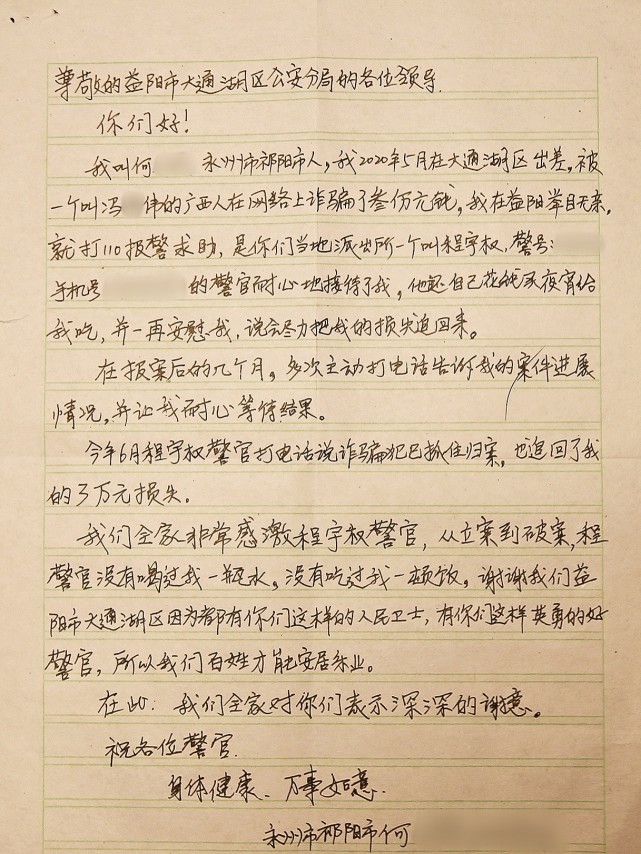 尊敬的益阳市大通湖区公安分局的各位领导.
你们好!
我叫何 永州市祁阳市人,我2020年5月在大通湖区出差,被
一个叫冯 伟的广西人在网络上诈骗了叁仂元钱,我在益阳举目无亲,
就打110报警求助,是你们当地派出所一个叫程宇权,警号:
手机号 的警官耐心地接待了我,他还自己花钱买夜宵给
我吃,并一再安慰我,说会尽力把我的损失追回来。
在报案后的几个月,多次主动打电话告诉我的案件进展
情况,并让我耐心等待结果。
今年6月程宇权警官打电话说诈骗犯已抓住归案,也追回了我
的3万元损失。
我们全家非常感激程宇权警官,从立案到破案,程
警官没有喝过我一瓶水,没有吃过我一顿饭,谢谢我们益
阳市大通湖区因为都有你们这样的人民卫士,有你们这样英勇的好
警官,所以我们百姓才能安居乐业。
在此:我们全家对你们表示深深的谢意。
祝各位警官
身体健康、万事如意.
永州市祁阳市何